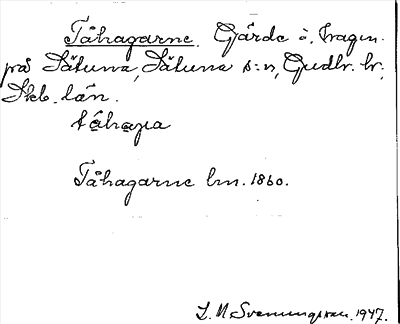 Tåhagarne. Gärde å. Tragen.
på Sätuna, Sätuna s:n, Gudhr. hr.
Skb. län.
tåhaga
Tåhagarne lm. 1860.
S. M. Svenungsson. 1947.